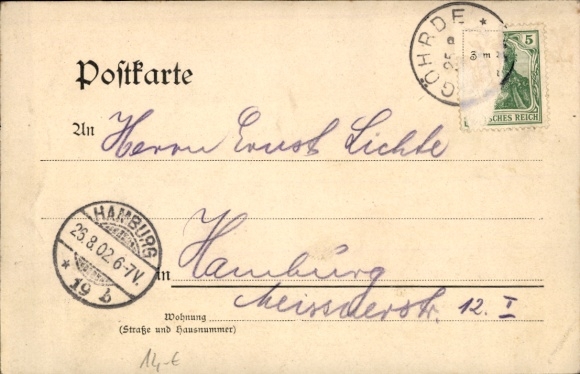 GÖHRDE
25
5
DEUTSCHES REICH
Postkarte
An Herrn Ernst Lichte
HAMBURG
26.8.02.6-7V.
* 19 b
in Hamburg
Meissnerstr. 12. I
Wohnung
(Straße und Hausnummer)
14,-€